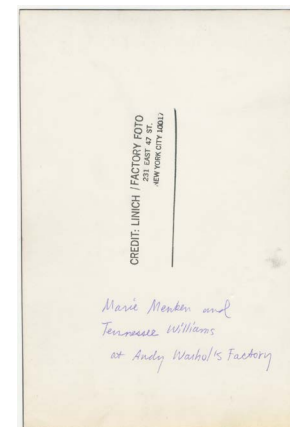 CREDIT: LINICH / FACTORY FOTO
231 EAST 47 ST.
NEW YORK CITY 10017
Marie Menken and
Tennessee Williams
at Andy Warhol's Factory